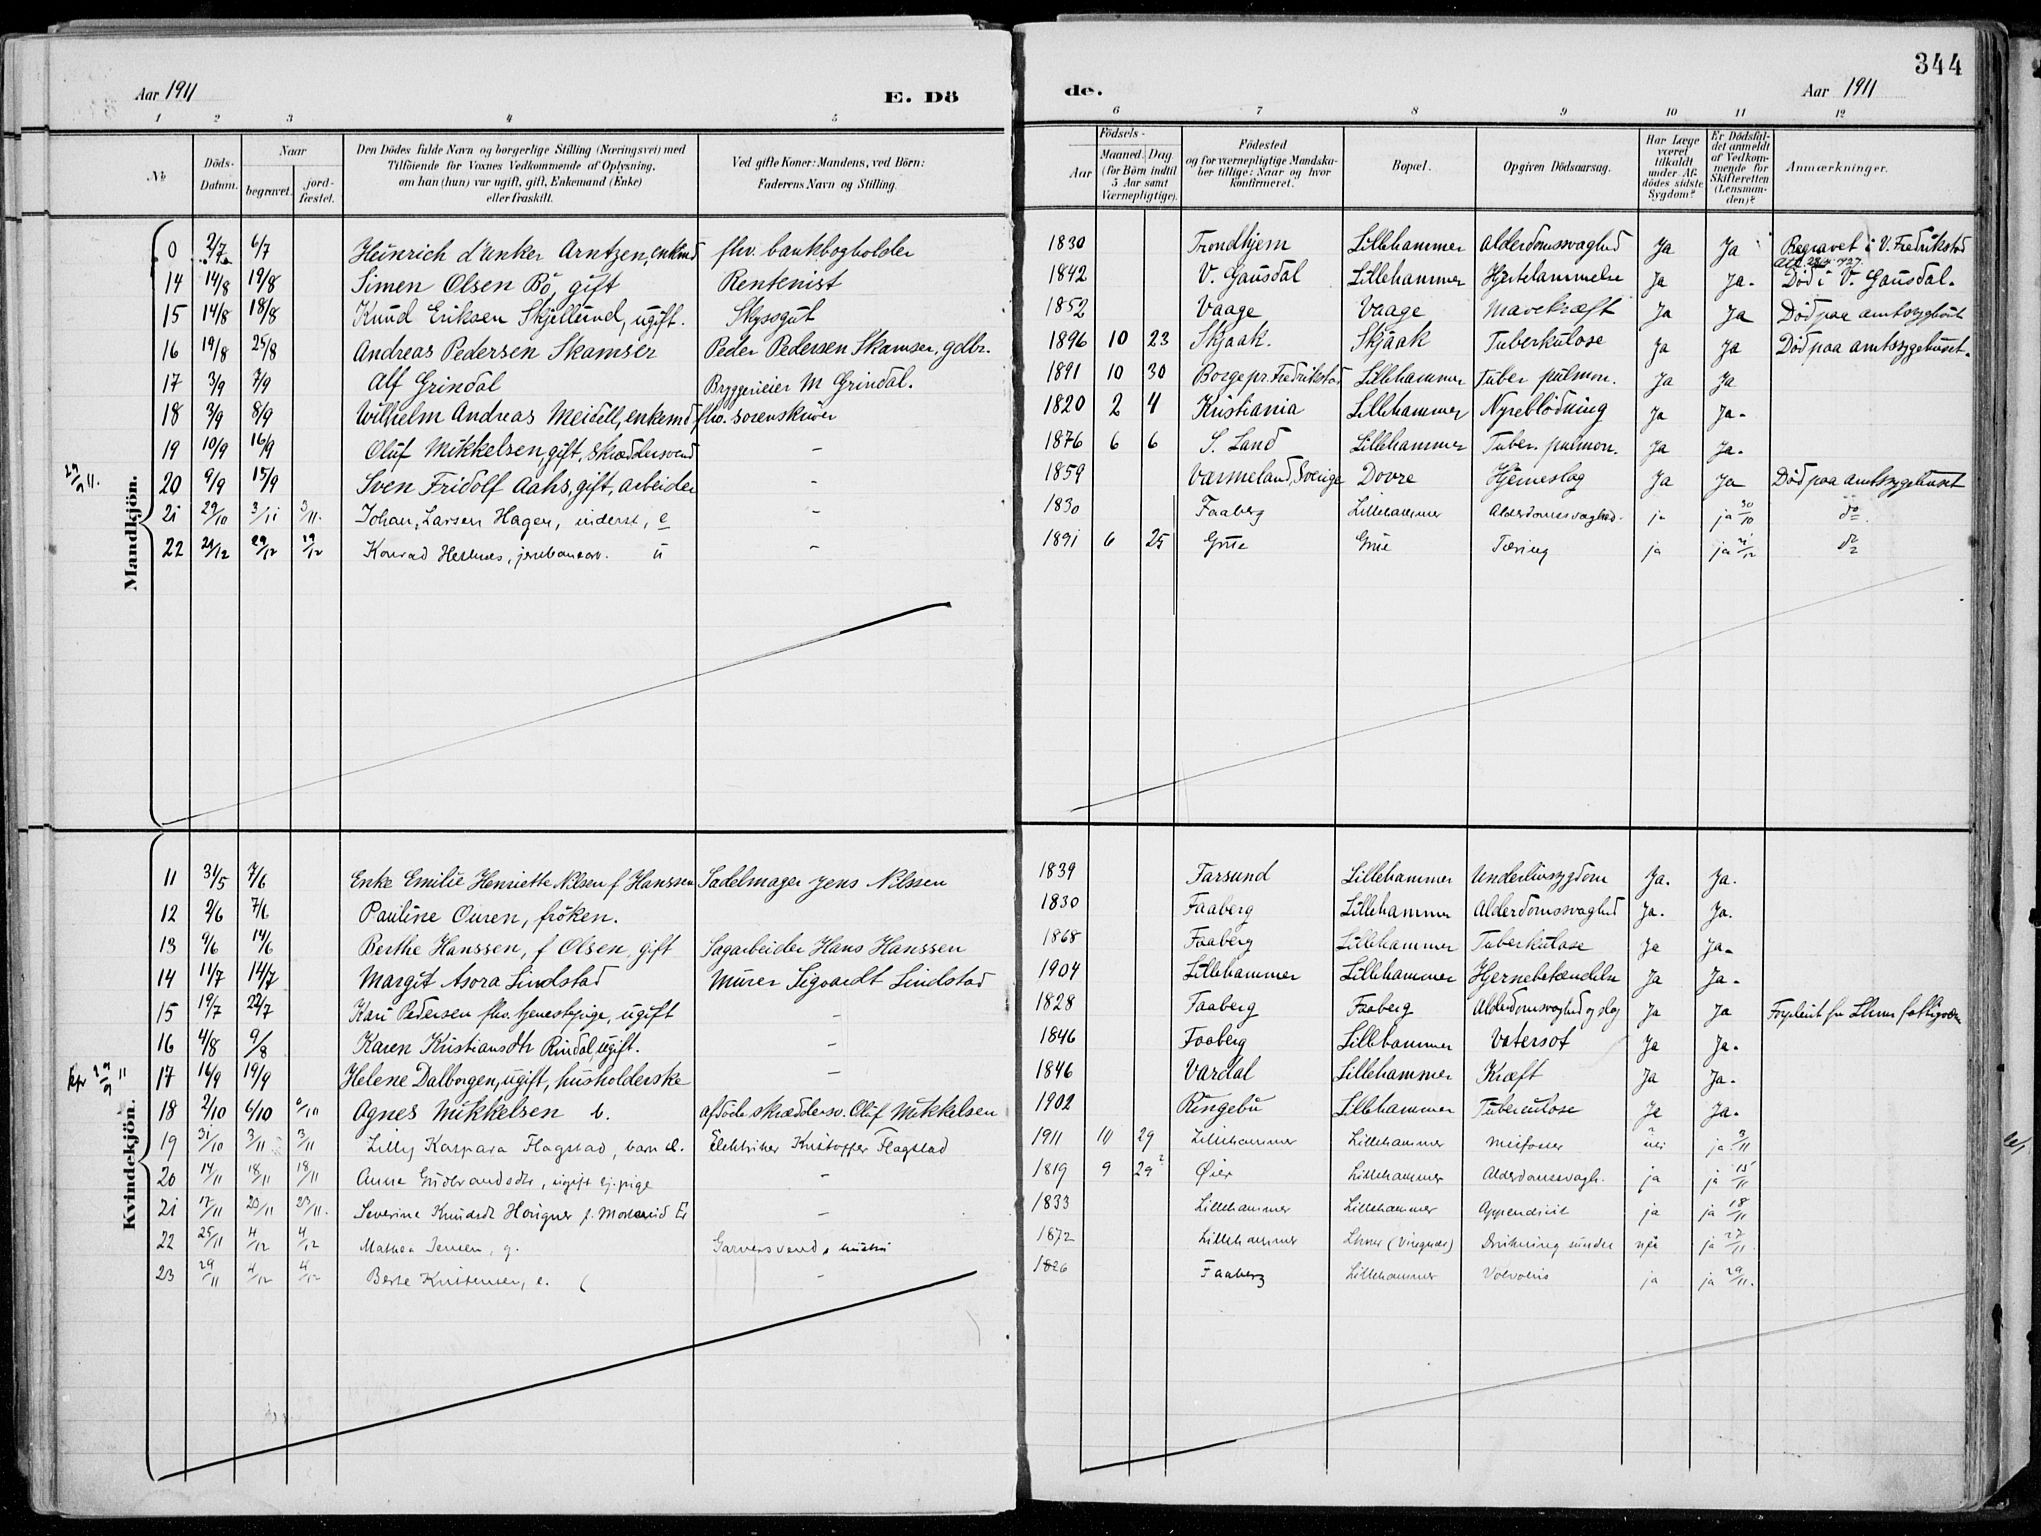 344
Aar 1911 E. Dö
de. Aar 1911
1 2 3 4 5
6 7 8 9 10 11 12
No Döds-Datum. Naar begravet. jord-fæstet. Den Dödes fulde Navn og borgerlige Stilling (Næringsvei) med Tilföiende for Voxnes Vedkommende af Oplysning, om han (hun) var ugift, gift, Enkemand (Enke) eller fraskilt. Ved gifte Koner: Mandens, ved Börn: Faderens Navn og Stilling.
Födsels- Aar Maaned. Dag. (for Börn indtil 5 Aar samt Værnepligtige). Födested og for værnepligtige Mandskaber tillige: Naar og hvor konfirmeret. Bopæl. Opgiven Dödsaarsag. Har Læge været tilkaldt under Afdödes sidste Sygdom? Er Dödsfaldet anmeldt af Vedkommende for Skifteretten (Lensmanden)? Anmærkninger.
Mandkjön.
0 2/7 6/7 Heinrich d'unker Arntzen, enkmd fhv. bankbogholder 1830 Trondhjem Lillehammer Alderdomssvaghed Ja Ja Begravet i V. Fredrikstad
14 14/8 19/8 Simen Olsen Bö, gift Rentenist 1842 V. Gausdal Lillehammer Hjertelammelse Ja Ja. Död i V. Gausdal.
15 14/8 18/8 Knud Eriksen Skjellund, ugift. Skysgut 1852 Vaage Vaage Mavekræft Ja Ja Död paa amtssyghuset
16 19/8 25/8 Andreas Pedersen Skamser Peder Pedersen Skamser, gdbr. 1896 10 23 Skjaak. Skjaak Tuberkulose Ja Ja Död paa amtssygehuset.
17 3/9 7/9 Alf Grindal Bryggerieier M Grindal. 1891 10 30 Borge pr. Fredrikstad Lillehammer Tuber pulmon. Ja Ja
18 3/9 8/9 Wilhelm Andreas Meidell, enkemd fhv. sorenskriver 1820 2 4 Kristiania Lillehammer Nyreblödning Ja Ja.
19 10/9 16/9 Oluf Mikkelsen, gift, skræddersvend - 1876 6 6 S. Land Lillehammer Tuber. pulmon. Ja Ja.
20 9/9 15/9 Sven Fridolf Aahs, gift, arbeider - 1859 Varmeland, Sverige Dovre Hjerneslag Ja Ja Död paa amtssygehuset
21 29/10 3/11 3/11. Johan Larsen Hagen, inderst, e - 1830 Faaberg Lillehammer Alderdomssvaghed. ja ja 30/10 do
22 21/12 29/12 29/12 Konrad, jernbanearb. u - 1891 6 25 Grue Grue Tæring ja ja 21/12 do
Kvindekjön.
11 31/5 7/6 Enke Emilie Henriette Nilsen f Hanssen Sadelmager Jens Nilssen 1839 Farsund Lillehammer Underlivssygdom Ja. Ja.
12 2/6 7/6 Pauline Ouren, fröken. 1830 Faaberg Lillehammer Alderdomssvaghed Ja. Ja.
13 9/6 14/6 Berthe Hanssen, f Olsen, gift Sagarbeider Hans Hanssen 1868 Faaberg Lillehammer Tuberkulose Ja Ja.
14 11/7 14/7 Margit Asora Lindstad Murer Sigvardt Lindstad 1904 Lillehammer Lillehammer Hjernebetændelse Ja Ja.
15 19/7 22/7 Kari Pedersen fhv. tjenestepige, ugift - 1828 Faaberg Faaberg Alderdomssvaghed og slag Ja Ja Forpleiet fra Lhmr fattigvæsen
16 4/8 9/8 Karen Kristiansdtr Rindal, ugift. - 1846 Faaberg Lillehammer Vatersot Ja Ja.
17 16/9 19/9 Helene Dalborgen, ugift, husholderske - 1846 Vardal Lillehammer Kræft Ja Ja.
18 2/10 6/10 6/10 Agnes Mikkelsen b. afdöde skræddersv. Oluf Mikkelsen 1902 Ringebu Lillehammer Tuberculose Ja Ja.
19 31/10 3/11 3/11 Lilly Kaspara Flagstad, barn e. Elektriker Kristoffer Flagstad 1911 10 29 Lillehammer Lillehammer nei ja 2/11
20 14/11 18/11 18/11 Anne Gudbrandsdtr, ugift tj. pige - 1819 9 29? Øier Lillehammer Alderdomssvagh. ja ja 15/11
21 17/11 23/11 23/11. Severine Knudsdt Hougner f. E - 1833 Lillehammer Lillehammer Appendicit ja ja 18/11
22 25/11 4/12 4/12 Mathea Jensen, g. Garversvend, hustru 1872 Lillehammer Lhmr ja 27/11.
23 29/11 4/12 4/12 Berte Kristensen, e. - 1826 Faaberg Lillehammer Volvolus ja ja 29/11.